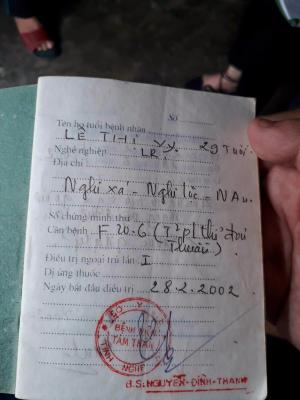 Số
Tên họ tuổi bệnh nhân
LÊ THỊ VY. 29 Tuổi.
Nghề nghiệp LR
Địa chỉ
Nghi xá - Nghi lộc - NAn.
Số chứng minh thư
Căn bệnh F 20.6 (T²pl thể đơn
Thuần)
Điều trị ngoại trú lần I
Dị ứng thuốc
Ngày bắt đầu điều trị 28.2.2002
SỞ Y TẾ
BỆNH VIỆN
TÂM THẦN
TỈNH NGHỆ
B.S: NGUYỄN-ĐÌNH-THANH